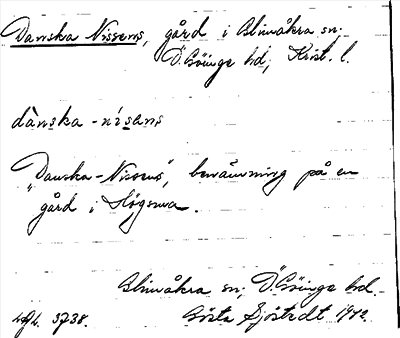 Danska Nissens, gård i Glimåkra sn;
Ö. Göinge hd, Krist. l.
dànska-nísens
"Danska-Nissens", benämning på en
gård i Högsma.
Glimåkra sn; Ö. Göinge hd.
3738. Gösta Sjöstedt 1942.